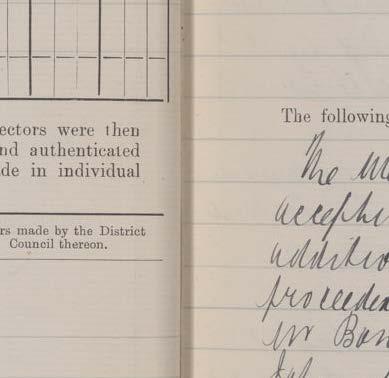 ectors were then
nd authenticated
de in individual
rs made by the District
Council thereon.
The following
The M
accepti
additio
proceeded
in Ban